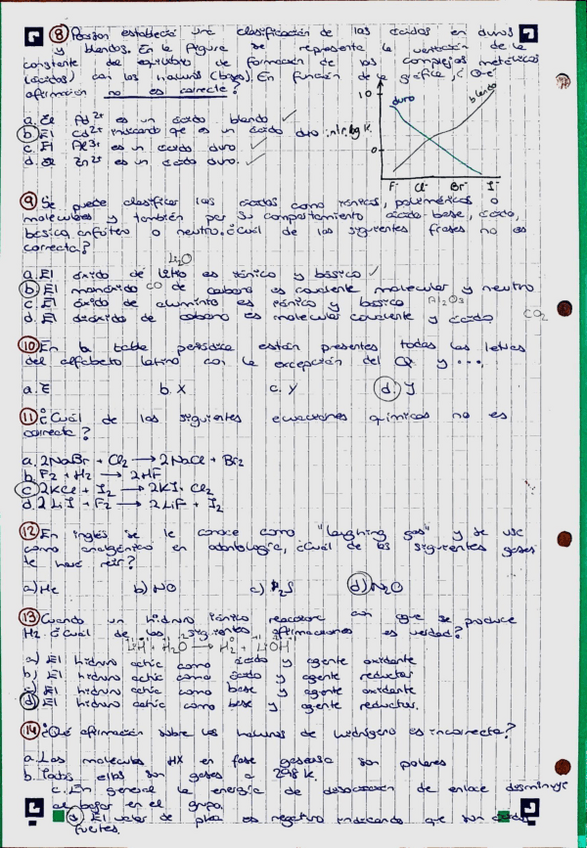 ⑧ Pearson estableció una clasificación de los ácidos en duros
y blandos. En la figura se representa la variación de la
constante del equilibrio de formación de los complejos metálicos
(ácidos) con los haluros (bases). En función de la gráfica, ¿Qué
afirmación no es correcta?
a. El Pd²⁺ es un ácido blando ✓
b. El Cd²⁺ es un ácido duro
c. El Al³⁺ es un ácido duro ✓
d. El Zn²⁺ es un ácido duro. ✓
10
duro
blando
log K
0
F⁻ Cl⁻ Br⁻ I⁻
⑨ Se puede clasificar los óxidos como iónicos, poliméricos o
moleculares y también por su comportamiento ácido-base, ácido,
básico, anfótero o neutro. ¿Cuál de las siguientes frases no es
correcta?
Li₂O
a. El óxido de litio es iónico y básico ✓
b. El monóxido CO de carbono es covalente molecular y neutro
c. El óxido de aluminio es iónico y básico Al₂O₃
d. El dióxido de carbono es molecular covalente y ácido CO₂
⑩ En la tabla periódica están presentes todas las letras
del alfabeto latino con la excepción del Q y ....
a. E b. X c. Y d. J
⑪ ¿Cuál de las siguientes ecuaciones químicas no es
correcta?
a. 2NaBr + Cl₂ → 2NaCl + Br₂
b. F₂ + H₂ → 2HF
c. 2KCl + I₂ → 2KI + Cl₂
d. 2LiI + F₂ → 2LiF + I₂
⑫ En inglés se le conoce como "laughing gas" y se usa
como analgénico en odontología, ¿Cuál de los siguientes gases
te hace reír?
a) He b) NO c) H₂S d) N₂O
⑬ Cuando un hidruro iónico reacciona con agua se produce
H₂. ¿Cuál de las siguientes afirmaciones es verdad?
LiH + H₂O → H₂ + LiOH
a) El hidruro actúa como ácido y agente oxidante
b) El hidruro actúa como ácido y agente reductor
c) El hidruro actúa como base y agente oxidante
d) El hidruro actúa como base y agente reductor.
⑭ ¿Qué afirmación sobre los haluros de hidrógeno es incorrecta?
a. Las moléculas HX en fase gaseosa son polares
b. Todos ellos son gases a 298 K.
c. En general la energía de disociación de enlace disminuye
al bajar en el grupo.
d. El valor de pka es negativo indicando que son ácidos
fuertes.